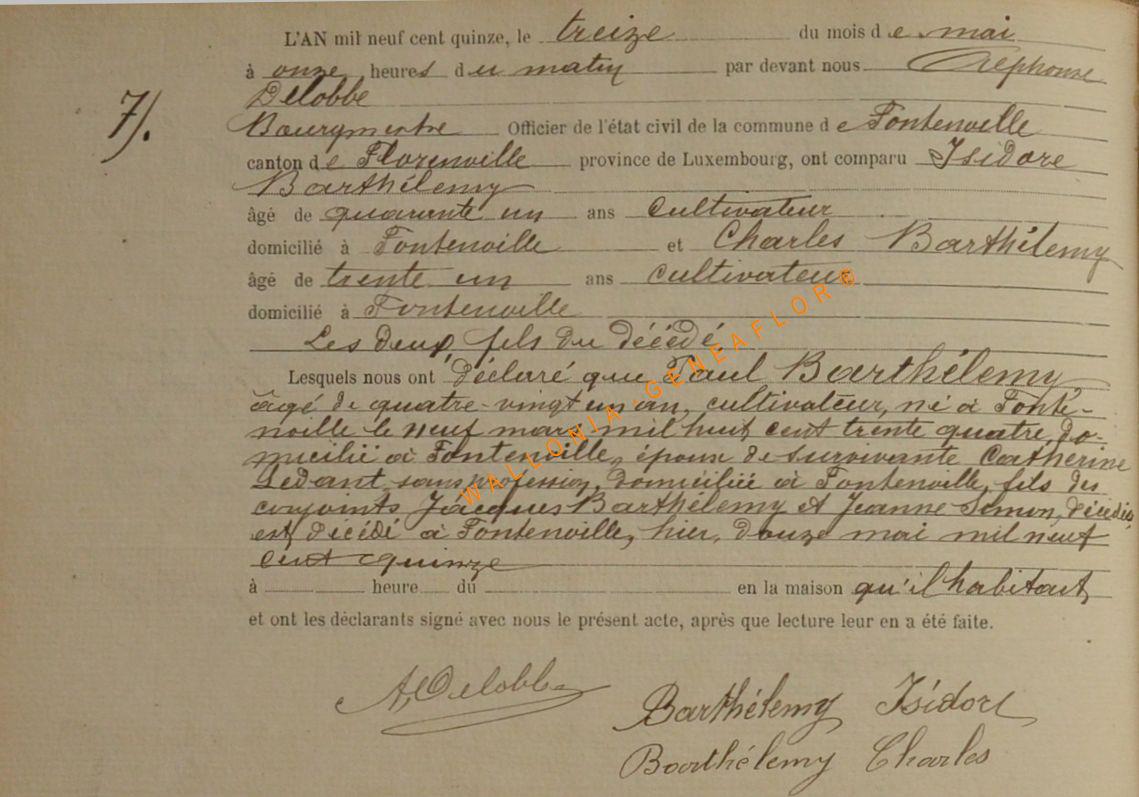 L'AN mil neuf cent quinze, le treize du mois de mai
à onze heures du matin par devant nous Alphonse
Delobbe
7).
Bourgmestre Officier de l'état civil de la commune de Fontenoille
canton de Florenville province de Luxembourg, ont comparu Isidore
Barthélemy
âgé de quarante un ans cultivateur
domicilié à Fontenoille et Charles Barthélemy
âgé de trente un ans cultivateur
domicilié à Fontenoille
Les deux fils du décédé
Lesquels nous ont déclaré que Paul Barthélemy
âgé de quatre-vingt un an, cultivateur, né à Fonte-
noille le neuf mars mil huit cent trente quatre, do-
micilié à Fontenoille, époux de survivante Catherine
Ledant sans profession, domiciliée à Fontenoille, fils des
conjoints Jacques Barthélemy et Jeanne Simon, décédés
est décédé à Fontenoille, hier, douze mai mil neuf
cent quinze
à heure du en la maison qu'il habitait
et ont les déclarants signé avec nous le présent acte, après que lecture leur en a été faite.
A, Delobbe
Barthélemy Isidore
Barthélemy Charles
WALLONIA-GENEAFLOR®